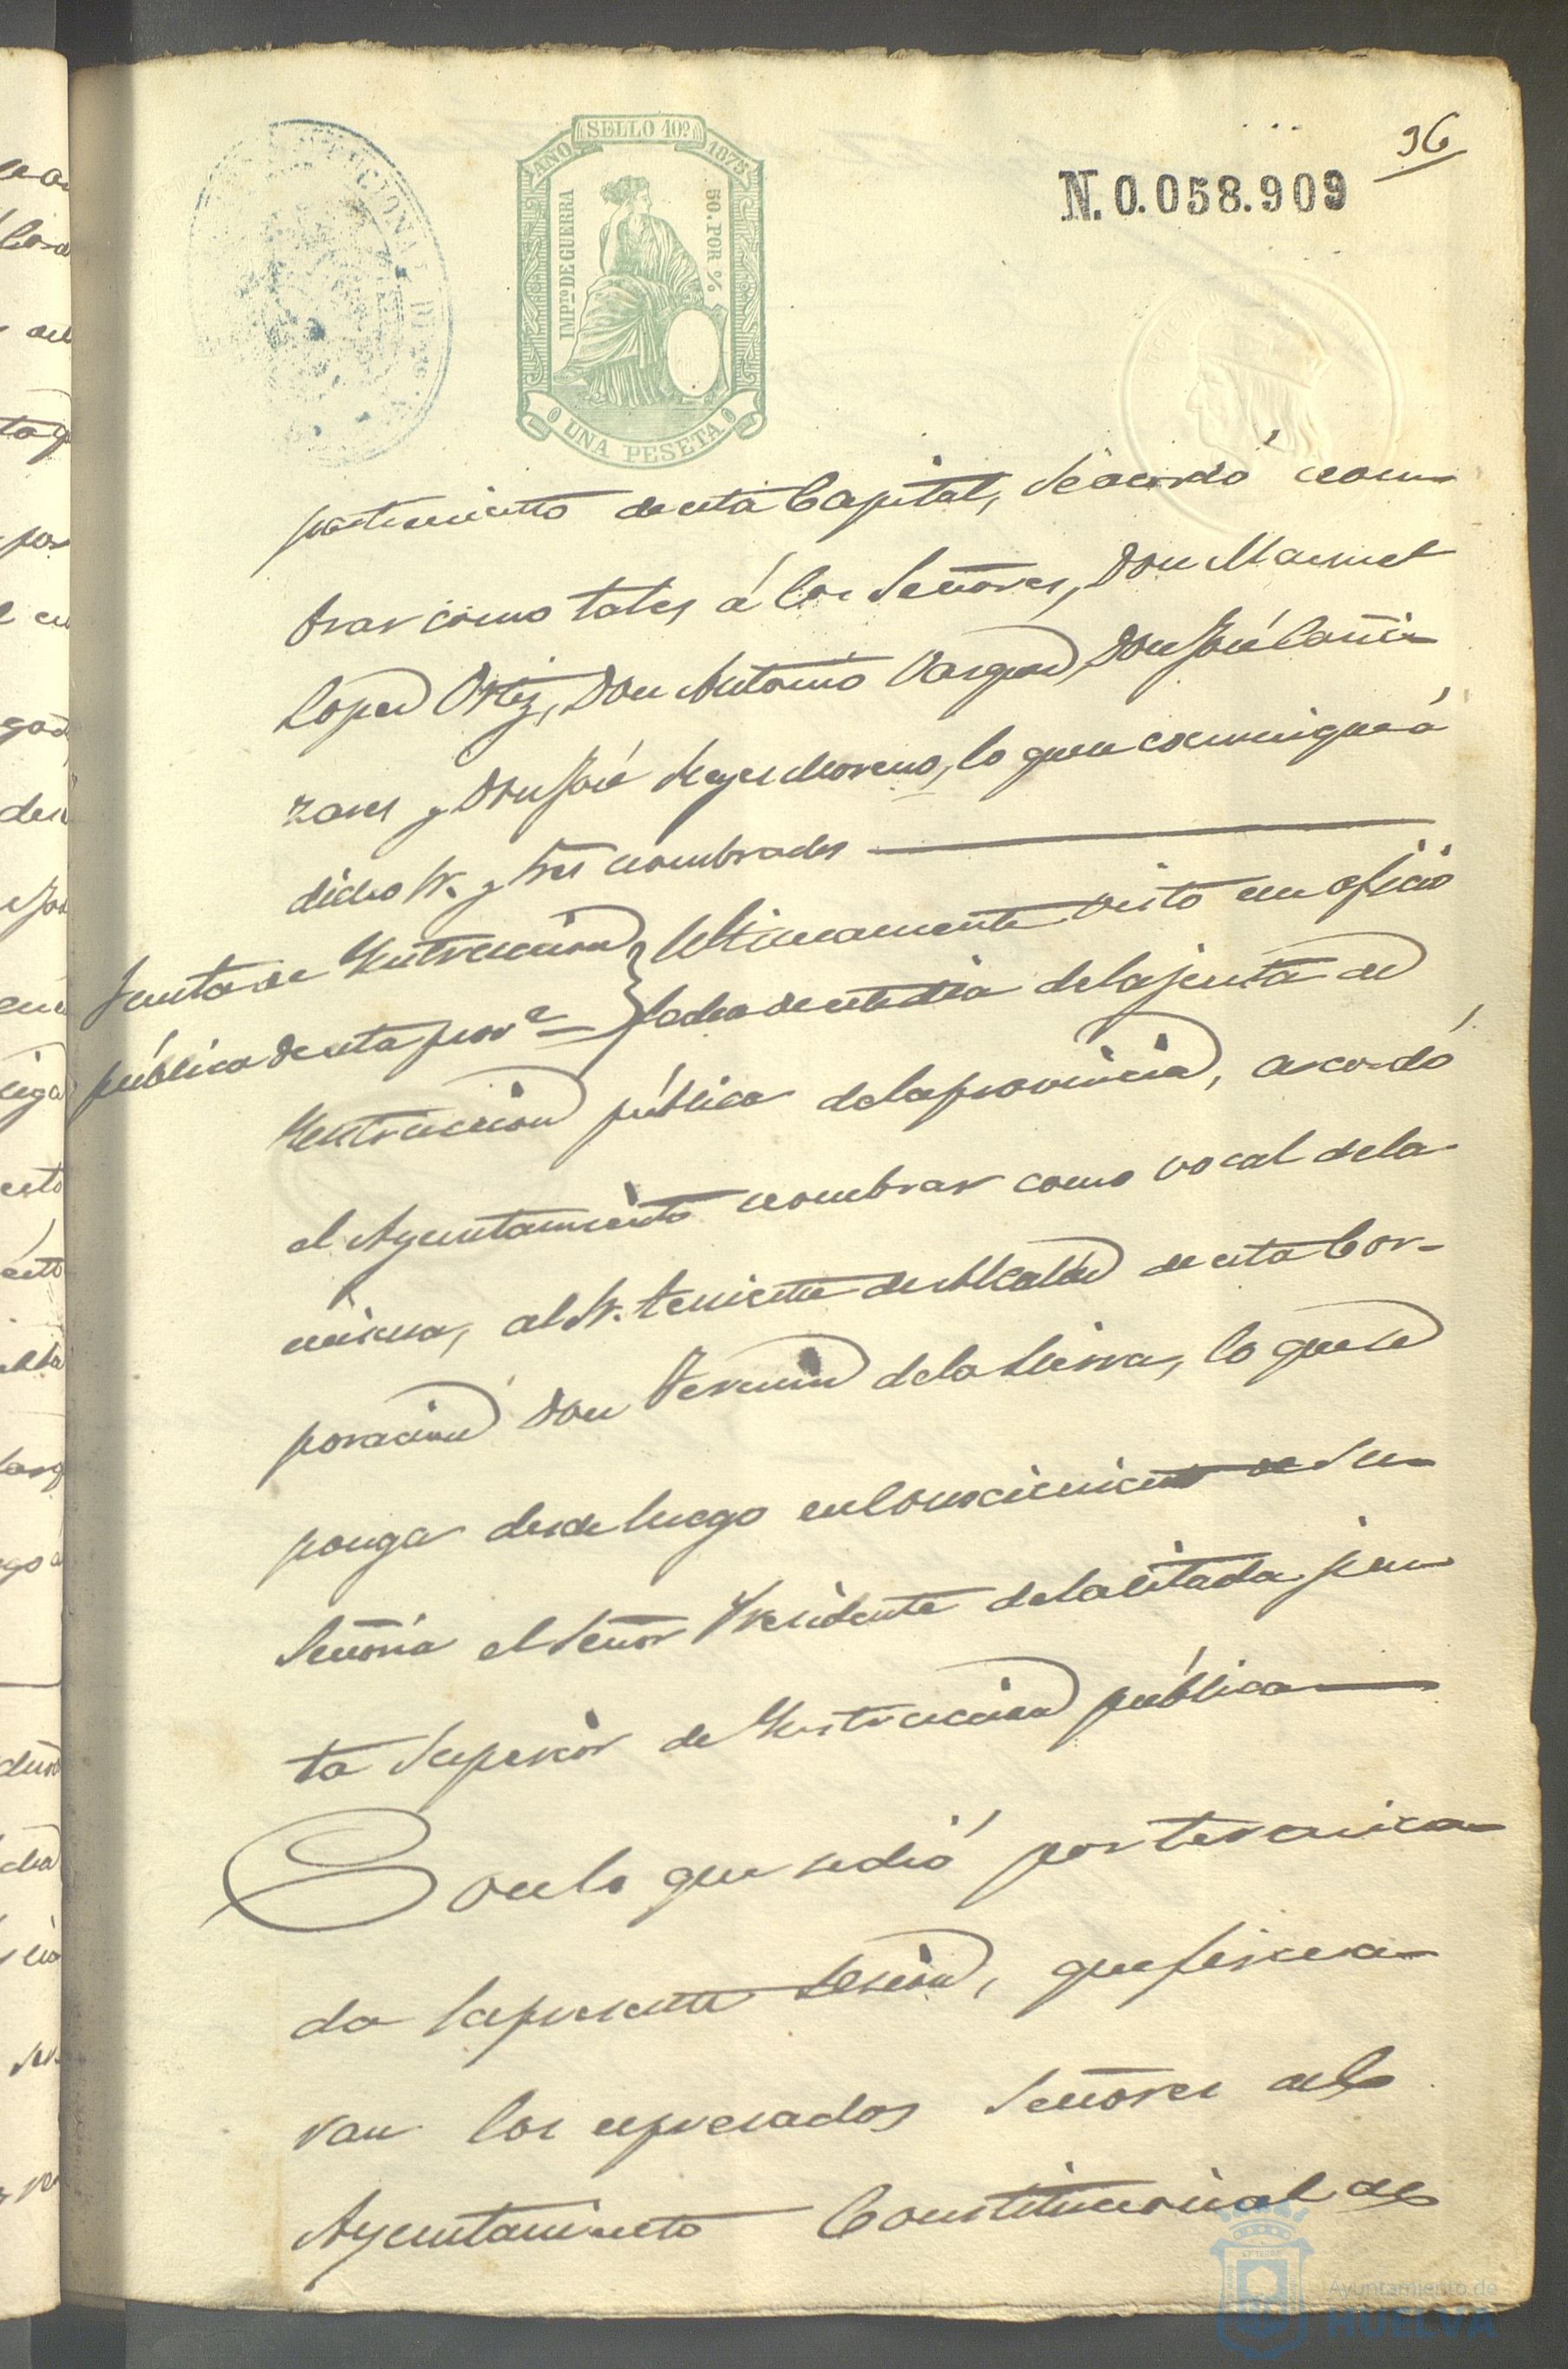 96
N. 0.058.909
SELLO 10º
AÑO 1875
IMPTO DE GUERRA
50. POR %
UNA PESETA
partimiento de esta Capital, se acordó nom-
brar como tales á los Señores, Don Manuel
Lopez Ortiz, Don Antonio Vargas, Don José Cañi-
zares y Don José Reyes Moreno, lo que se comunique á
dicho Sr. y tres nombrados
Junta de Instruccion
pública de esta prova
Ultimamente visto un oficio
fecha de este dia de la junta de
Instruccion pública de la provincia, acordó
el Ayuntamiento nombrar como vocal de la
misma, al Sr. teniente de Alcalde de esta Cor-
poracion Don Fermin de la Sierra, lo que se
ponga desde luego en conocimiento de Su
Señoria el Señor Presidente de la citada jun
ta Superior de Instruccion pública
Con lo que se dió por termina
da la presente Sesion, que firma
ran los espresados Señores del
Ayuntamiento Constitucional de
Ayuntamiento de
HUELVA